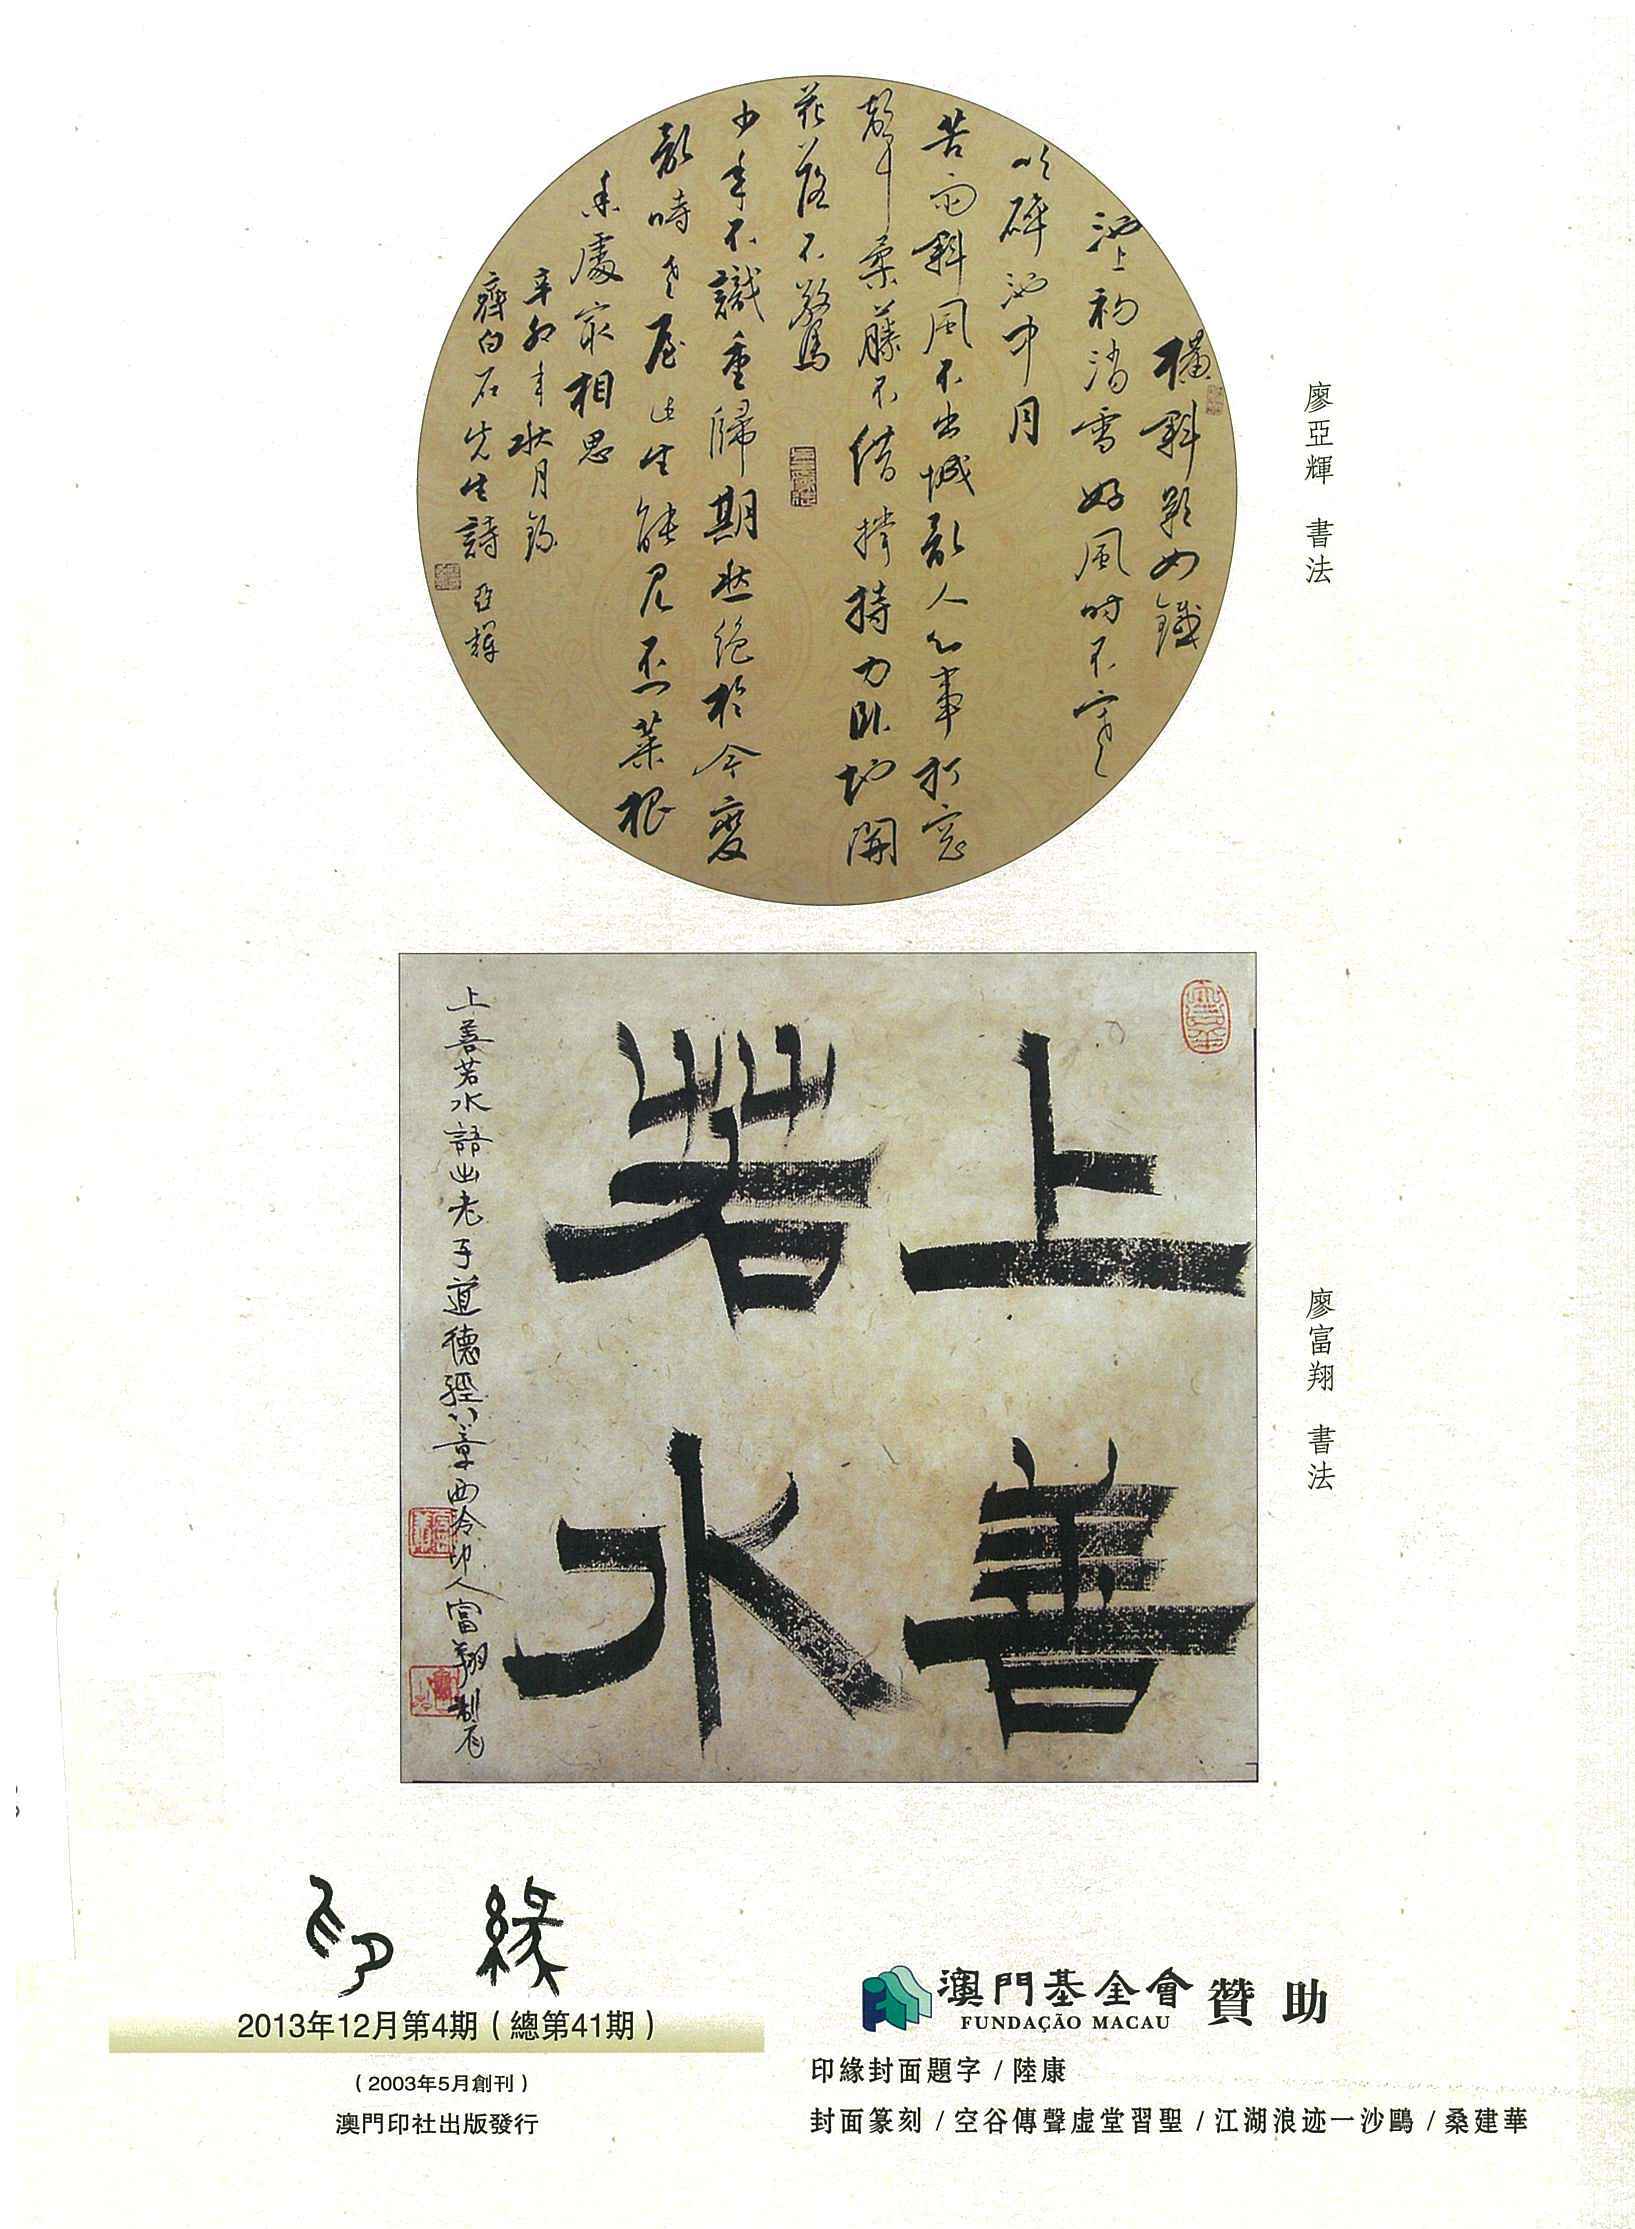 廖亞輝 書法
橫斜影如鐵
池上初消雪好風時不
吹碎池中月
苦雨斜風不出城亂人心事打窗
聲藤不借撐持力臥地開
花落不驚
少年不識重歸期愁絕於今變
亂時老屋此生能見否菜根
香處最相思
辛卯年秋月錄
齊白石先生詩 亞輝
廖富翔 書法
上善
若水
上善若水語出老子道德經八章西泠印人富翔制
印緣
2013年12月第4期（總第41期）
（2003年5月創刊）
澳門印社出版發行
澳門基金會 贊助
FUNDAÇÃO MACAU
印緣封面題字 / 陸康
封面篆刻 / 空谷傳聲虛堂習聖 / 江湖浪迹一沙鷗 / 桑建華